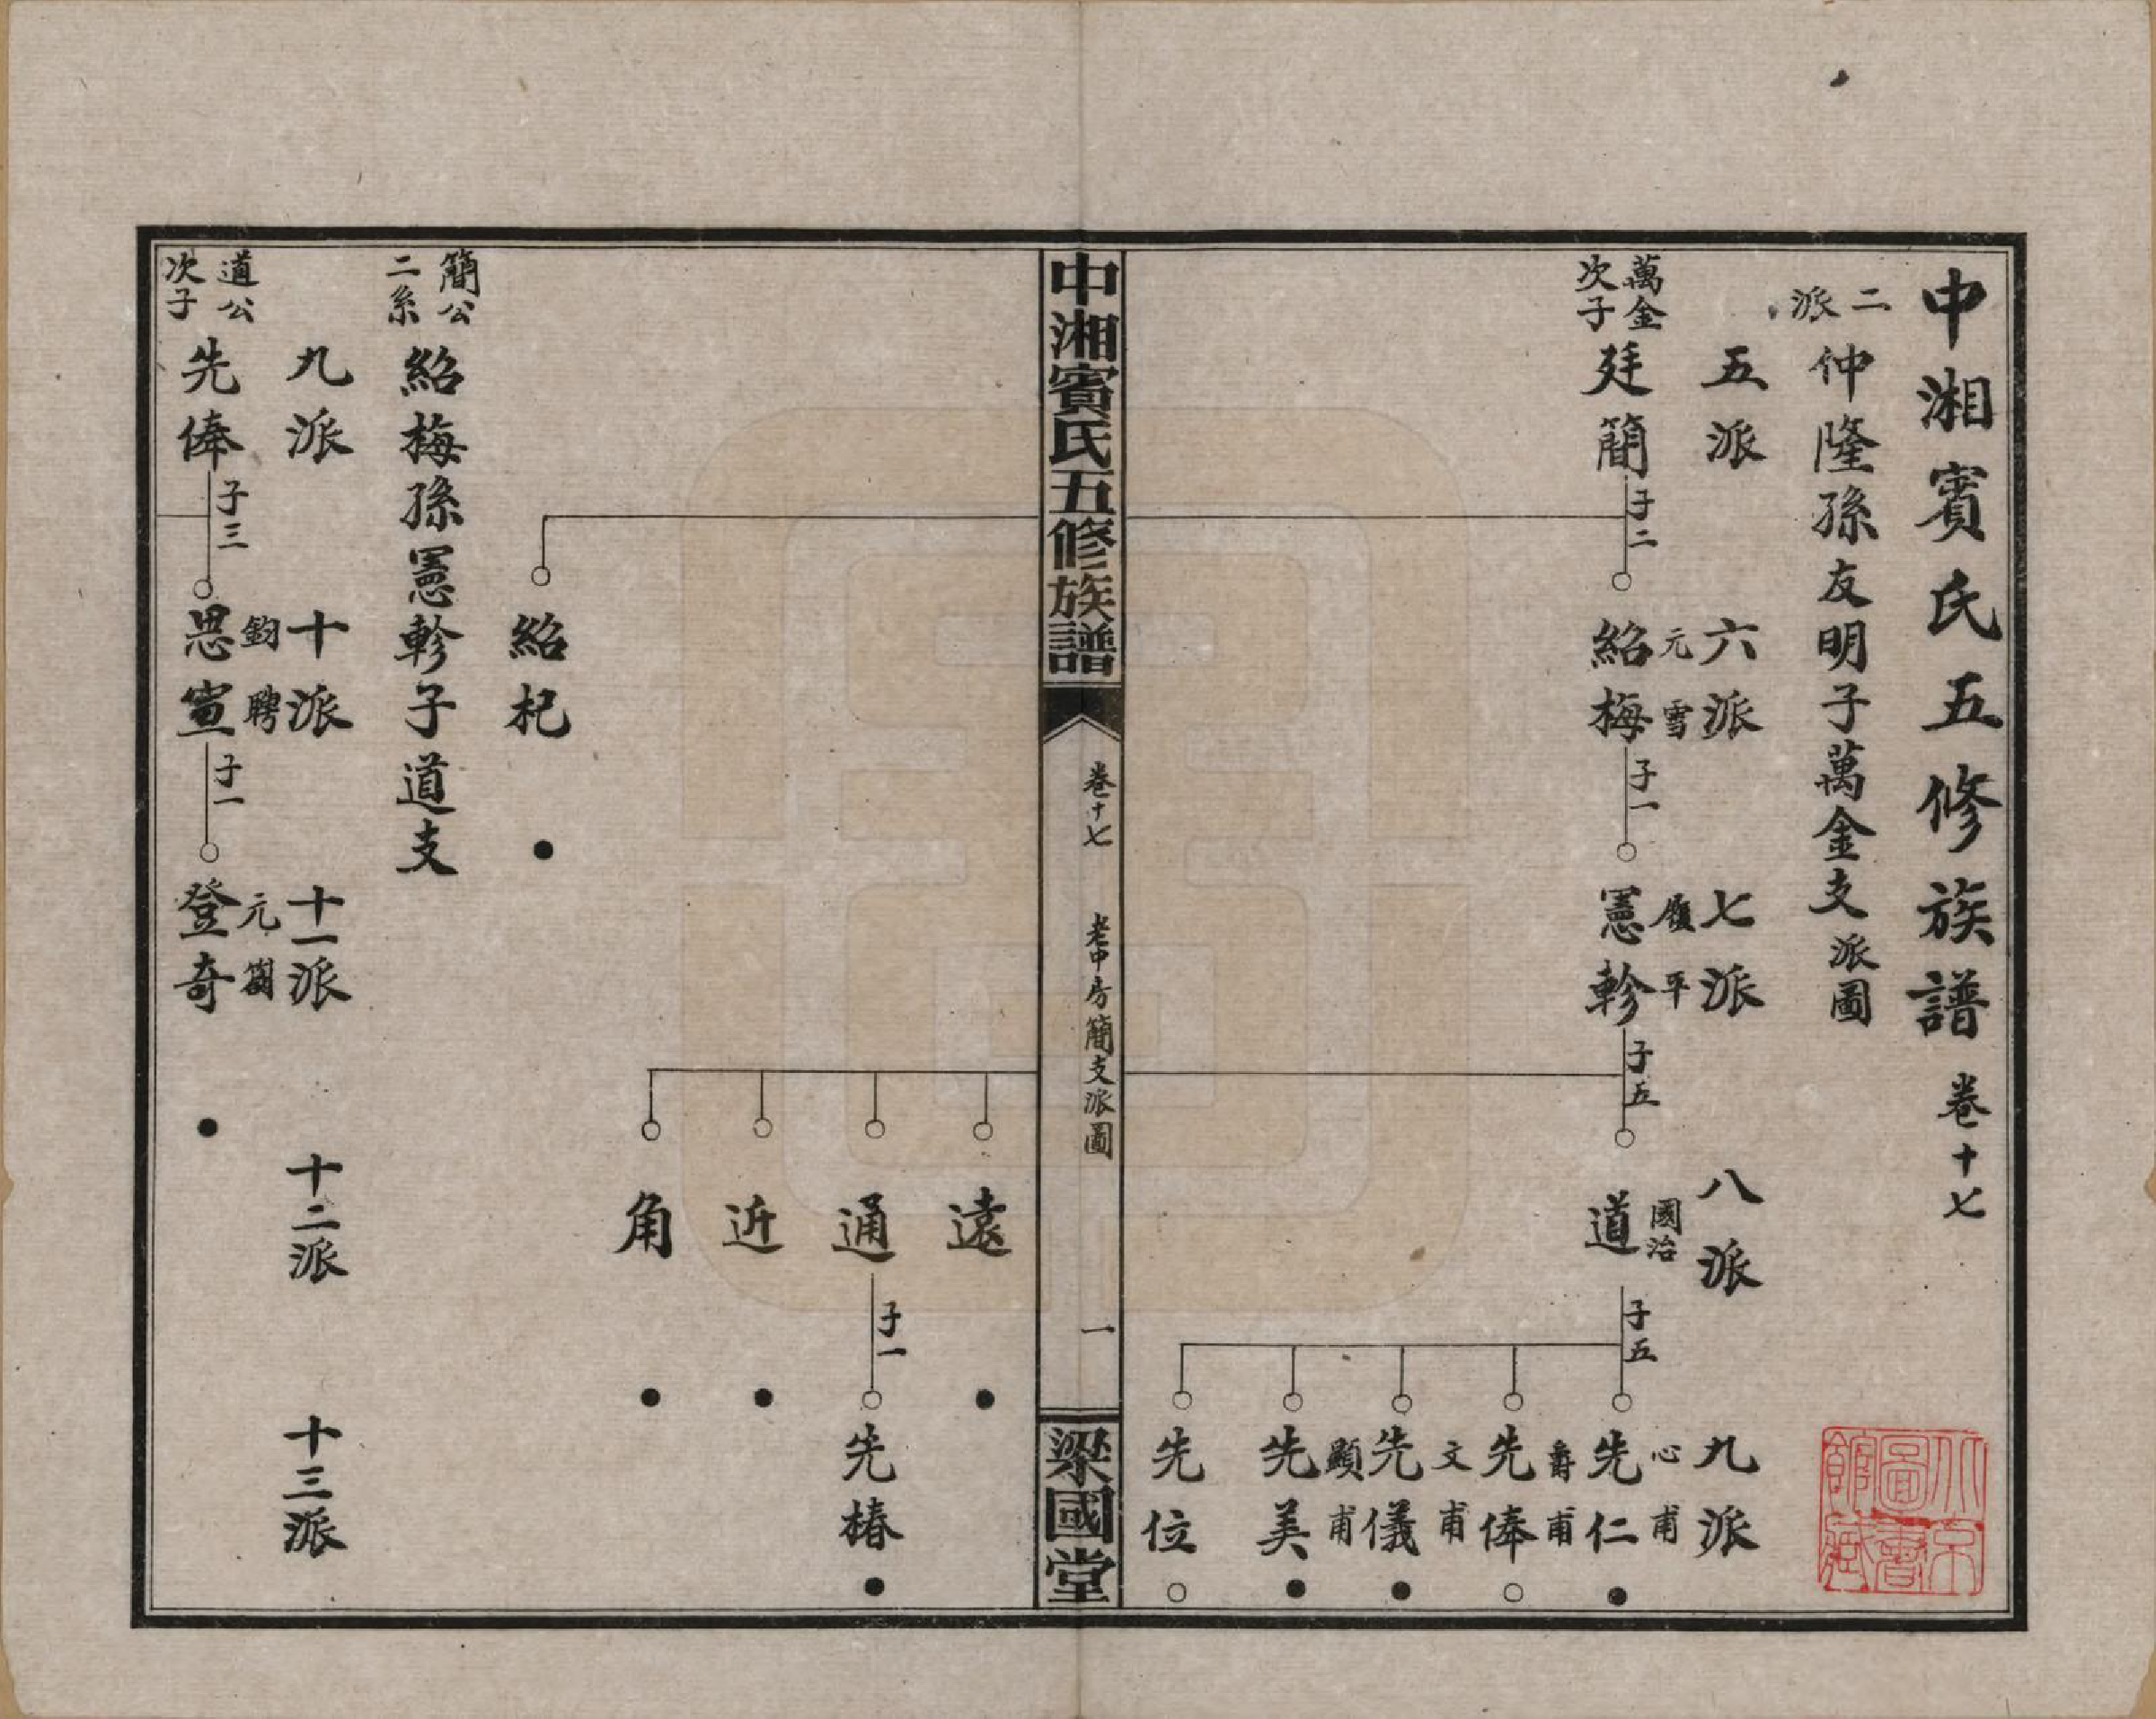 中湘賓氏五修族譜 卷十七
二派 仲隆孫友明子萬金支派圖
五派 六派 七派 八派 九派
萬金次子 廷簡 子二 紹梅 元雪 子一 憲軫 履平 子五 道 國治 子五 先仁 心甫
先俸 爵甫
先儀 文甫
先美 顯甫
先位
中湘賓氏五修族譜 卷十七 老中房簡支派圖 一 梁國堂
遠
通 子一 先椿
近
角
紹杞
簡公二系 紹梅孫憲軫子道支
九派 十派 十一派 十二派 十三派
道公次子 先俸 子三 思宣 鈞聘 子一 登奇 元
北京圖書館藏